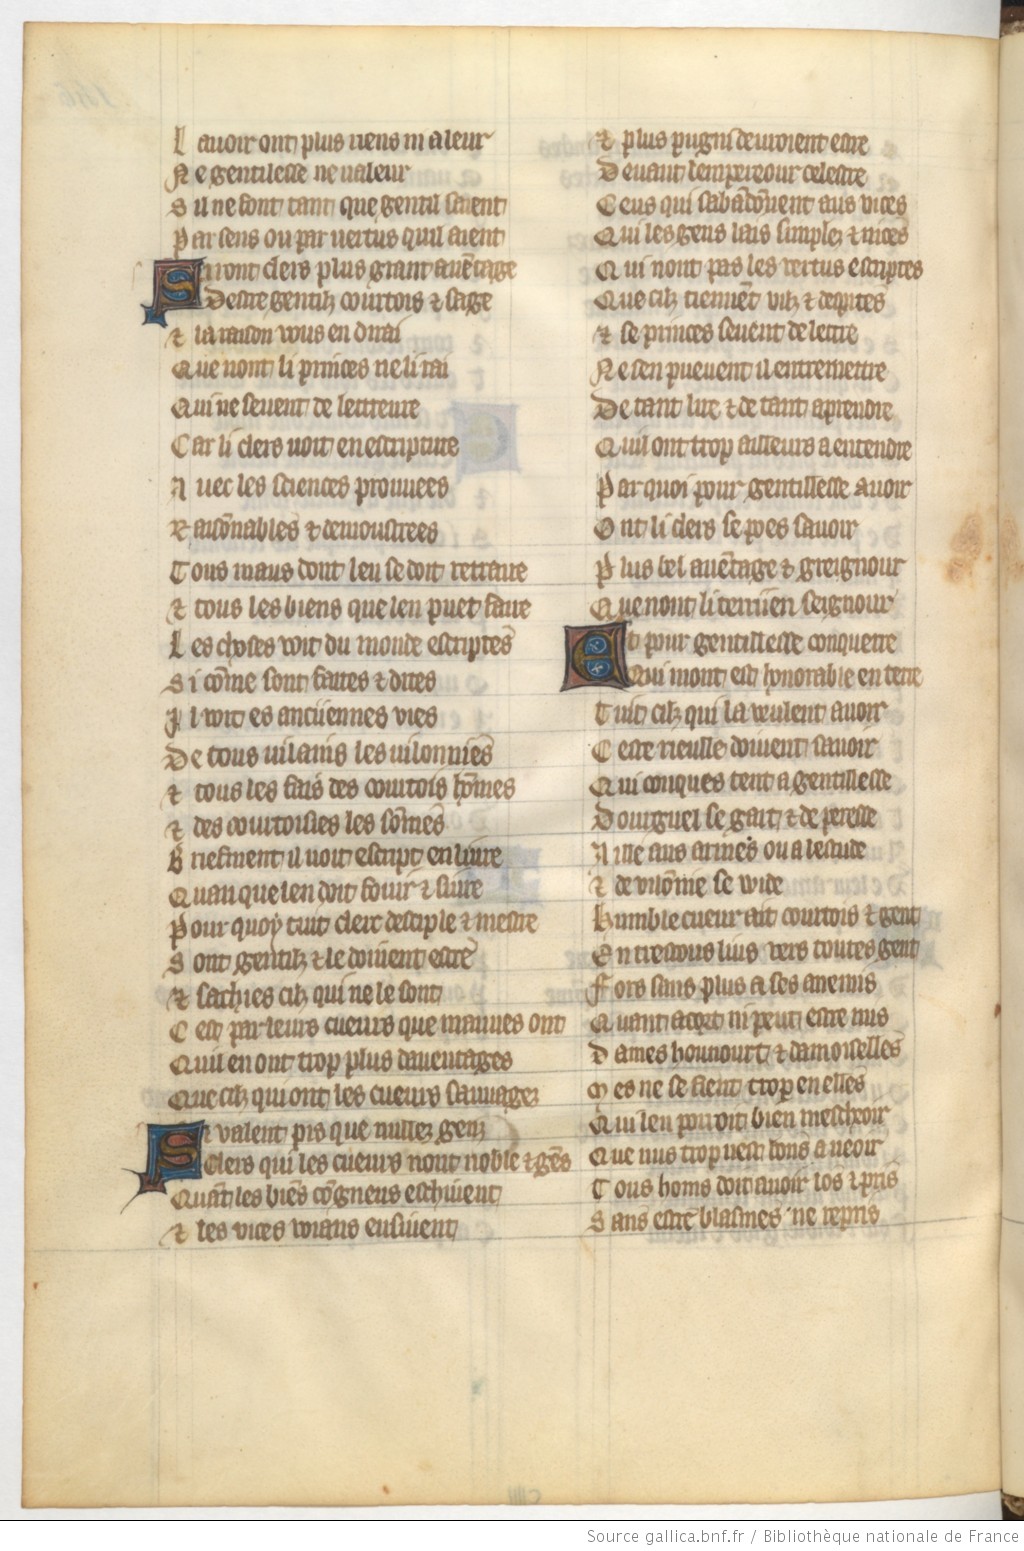 L avoir ont plus riens ni aleur
Ne gentilesse ne valeur
S il ne sont tant que gentil soient
Par sens ou par vertus quil aient
Si ront clers plus grant avētage
Destre gentilz courtois ⁊ sage
⁊ la raison vous en dirai
Que nont li princes ne li rai
Qui ne sevent de lettreure
Car li clers voit en escripture
Avec les sciences prouvees
Raisōnables ⁊ demoustrees
Tous maus dont len se doit retraire
⁊ tous les biens que len puet faire
Les choses voit du monde escriptes
Si cōme sont faites ⁊ dites
Il voit es anciennes vies
De tous vilains les vilonnies
⁊ tous les fais des courtois hōmes
⁊ des courtoisies les sōmes
Briefment il voit escript en livre
Quanque len doit fouir ⁊ suire
Pour quoy tuit clerc desciple ⁊ mestre
Sont gentilz ⁊ le doivent estre
⁊ sachies cilz qui ne le sont
Cest par leurs cueurs que mauves ont
Quil en ont trop plus davantages
Que cilz qui ont les cueurs sauvages
Si valent pis que nullez genz
Clers qui les cueurs nont noble ⁊ gēs
Quāt les biēs cōgneus eschivent
⁊ les vices voians ensivent
⁊ plus pugnis devroient estre
Devant lempereour celestre
Ceus qui sabādōnent aus vices
Qui les gens lais simplez ⁊ nices
Qui nont pas les vertus escriptes
Que cilz tiennēt vilz ⁊ despites
⁊ se princes sevent de lettre
Ne sen puevent il entremettre
De tant lire ⁊ de tant aprendre
Quil ont trop ailleurs a entendre
Par quoi pour gentillesse avoir
Ont li clers se poes savoir
Plus bel avētage ⁊ greignour
Que nont li terrien seignour
Et pour gentillesse conquerre
Qui mont est honorable en terre
Tuit cilz qui la veulent avoir
Ceste rieulle doivent savoir
Quiconques tent a gentillesse
Dourguel se gart ⁊ de peresse
Aille aus armes ou a lestude
⁊ de vilōnie se wide
Humble cueur ait courtois ⁊ gent
En trestous lius vers toutes gent
Fors sans plus a ses anemis
Quant acort ni peut estre mis
Dames hounourt ⁊ damoiselles
Mes ne se fient trop en elles
Quil len porroit bien meschoir
Que nus trop nest dons a veoir
Tous homs doit avoir los ⁊ pris
Sans estre blasmes ne repris
Source gallica.bnf.fr / Bibliothèque nationale de France